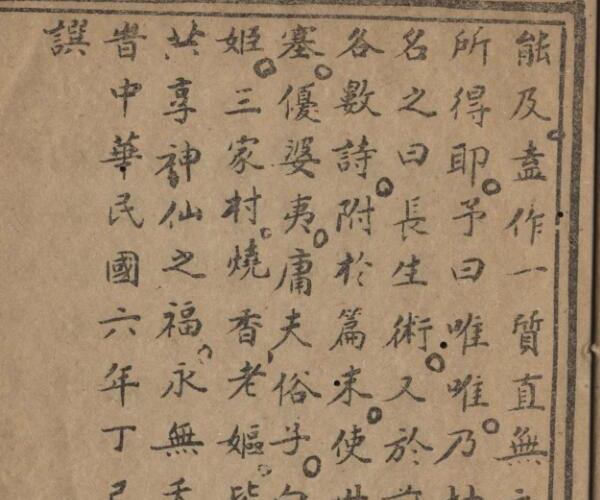 能及盍作一質直無
所得耶予曰唯唯乃
名之曰長生術又於
各數詩附於篇末使
塞優婆夷庸夫俗子
姬三家村燒香老嫗皆
共享神仙之福永無
旹中華民國六年丁巳
譔